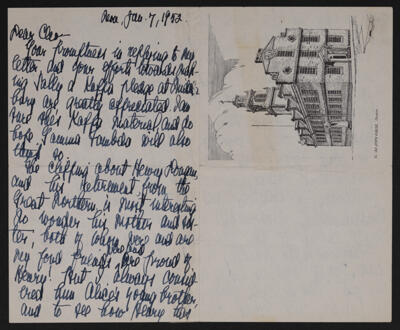 Jan. 7, 1952
Dear Cleo—
Your promptness in replying to my
letter, and your efforts towards mak-
ing Sally a Kappa pledge at
are greatly appreciated. I am
sure she's Kappa material and do
hope Gamma will also
think so.
The clipping about Henry
and his retirement from the
Great Northern, is most interesting
No wonder his mother and sis-
ter, both of whom were and are
my fond friends, are proud of
Henry! But I always consid-
ered him Alice's young brother,
and to see how Henry has